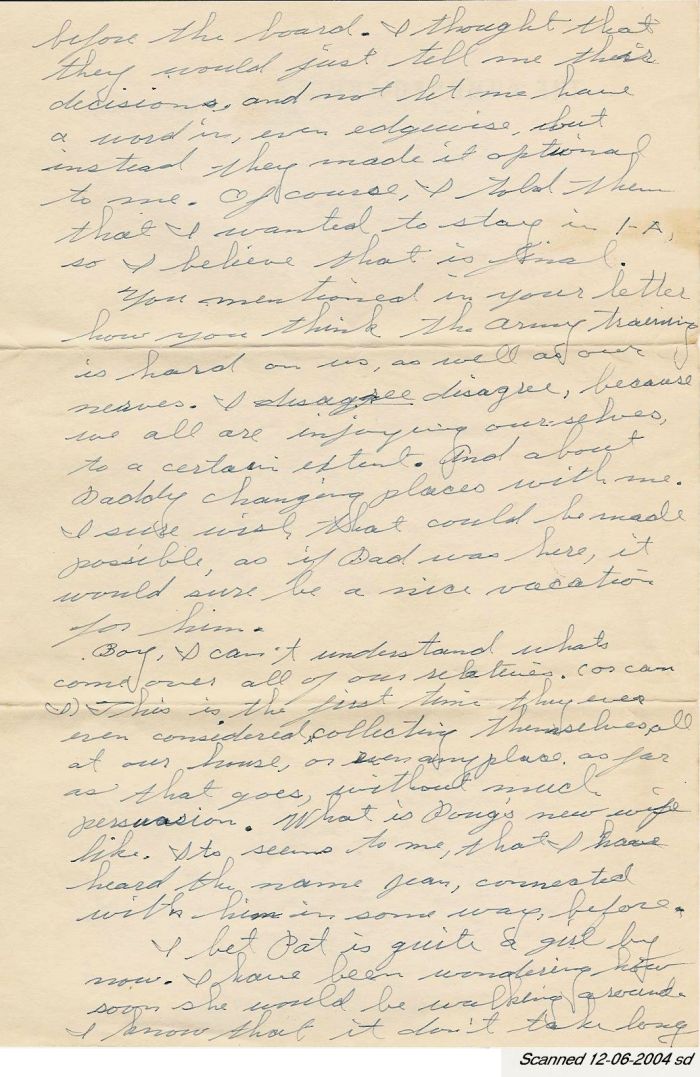 before the board. I thought that
they would just tell me their
decisions, and not let me have
a word in, even edgewise, but
instead they made it optional
to me. Of course, I told them
that I wanted to stay in 1-A,
so I believe that is final.
You mentioned in your letter
how you think the army training
is hard on us, as well as our
nerves. I disagree disagree, because
we all are injoying ourselves,
to a certain extent. And about
Daddy changing places with me.
I sure wish that could be made
possible, as if Dad was here, it
would sure be a nice vacation
for him.
Boy, I can't understand whats
come over all of our relatives. (or can
I) This is the first time they ever
even considered, collecting themselves all
at our house, or even anyplace, as far
as that goes, without much
persuasion. What is Doug's new wife
like. Its seems to me, that I have
heard the name Jean, connected
with him in some way, before.
I bet Pat is quite a girl by
now. I have been wondering how
soon she would be walking around.
I know that it don't take long
Scanned 12-06-2004 sd